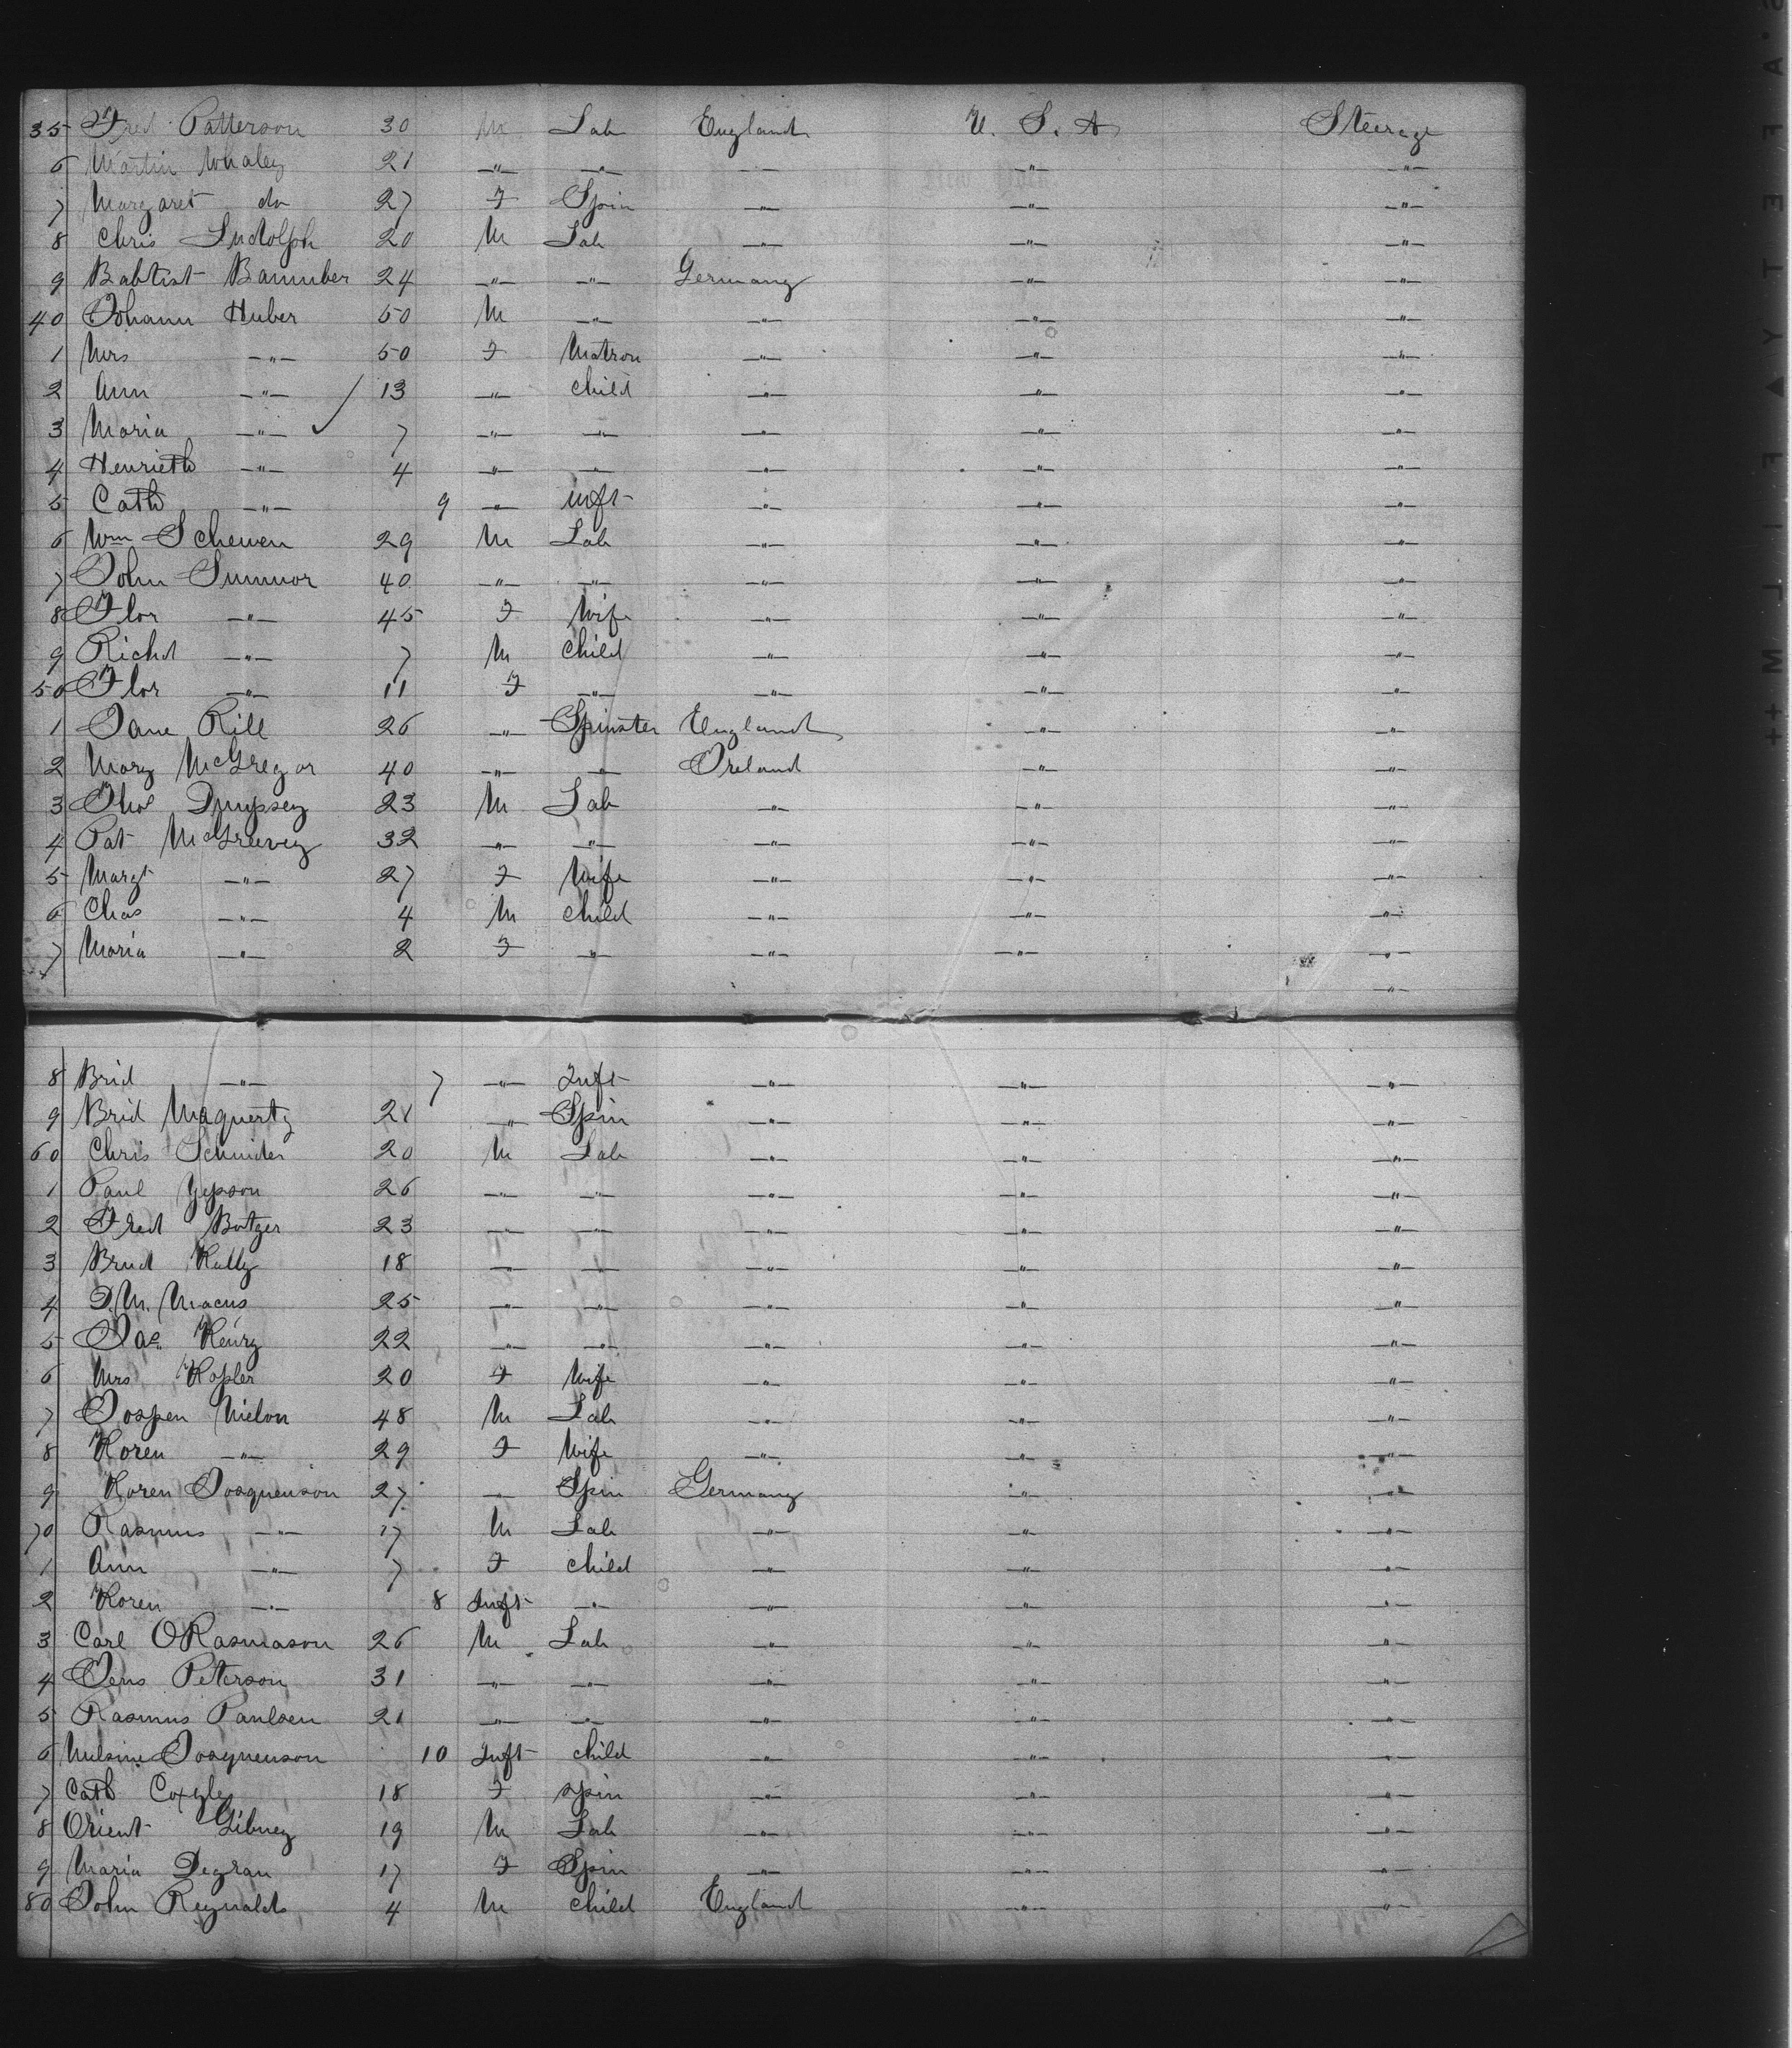 35 Fred Patterson 30 M Lab England U. S. A Steerage
6 Martin Whaley 21 " " " " "
7 Margaret do 27 F Spin " " "
8 Chris Ludolph 20 M Lab " " "
9 Babtist Bamuber 24 " " Germany " "
40 Johann Huber 50 M " " " "
1 Mrs " 50 F Matron " " "
2 Ann " 13 " Child " " "
3 Maria " 7 " " " " "
4 Henrieth " 4 " " " " "
5 Cath " 9 " inft " " "
6 Wm Schewen 29 M Lab " " "
7 John Sumnor 40 " " " " "
8 Flor " 45 F Wife " " "
9 Richd " 7 M Child " " "
50 Flor " 11 F " " " "
1 Jane Rill 26 " Spinster England " "
2 Mary McGregor 40 " " Ireland " "
3 Thos Dmypsey 23 M Lab " " "
4 Pat McGreevey 32 " " " " "
5 Margt " 27 F Wife " " "
6 Chas " 4 M Child " " "
7 Maria " 2 F " " " "
"
8 Brid " 7 " Inft " " "
9 Brid 21 " Spin " " "
60 Chris Schnider 20 M Lab " " "
1 Paul Yepson 26 " " " " "
2 Fred Botzer 23 " " " " "
3 Brud Kelly 18 " " " " "
4 D.M. Macus 25 " " " " "
5 Jas. Henry 22 " " " " "
6 Mrs Kopler 20 F Wife " " "
7 Jospen Nielon 48 M Lab " " "
8 Koren " 29 F Wife " " "
9 Koren Josquenson 27 " Spin Germany " "
70 Rasmus " 17 M Lab " " "
1 Ann " 7 F Child " " "
2 Koren " 8 Inft " " " "
3 Carl O Rasmason 26 M Lab " " "
4 Jens Peterson 31 " " " " "
5 Rasmus Paulsen 21 " " " " "
6 Nielsine Josquenson 10 Inft child " " "
7 Cath Coxyle 18 F spin " " "
8 Orient Gibney 19 M Lab " " "
9 Maria Degnan 17 F Spin " " "
80 John Reynalds 4 M Child England " "